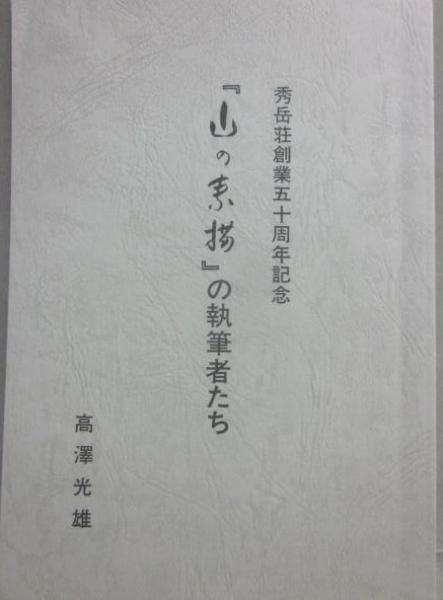 秀岳荘創業五十周年記念
『山の素描』の執筆者たち
高澤光雄